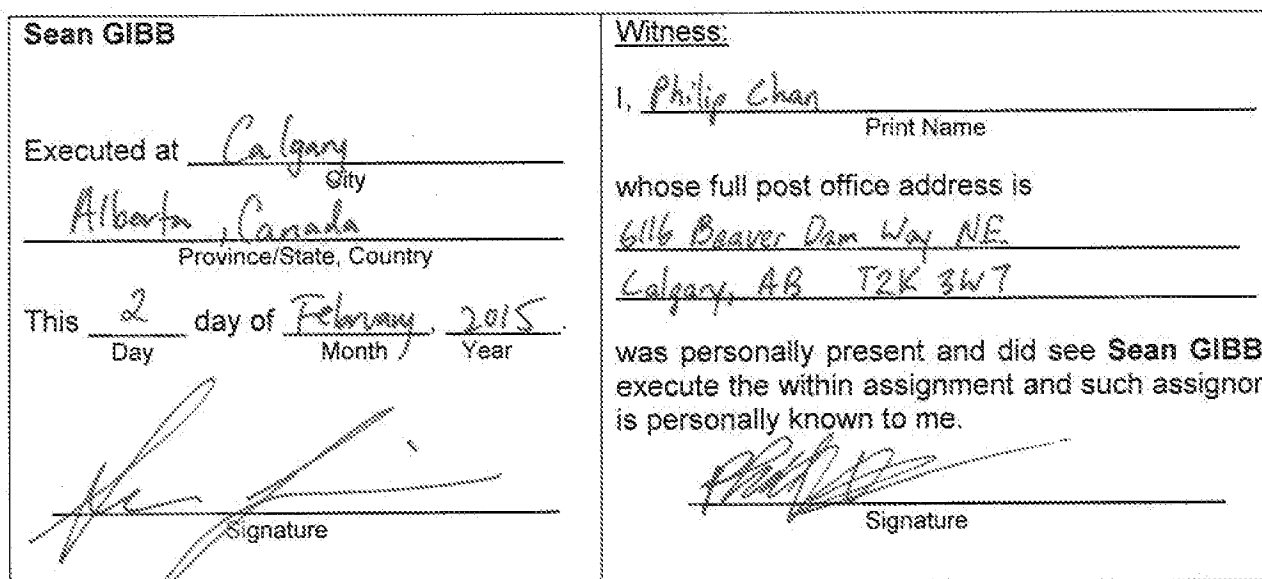 Sean GIBB
Executed at Calgary
City
Alberta, Canada
Province/State, Country
This 2 day of February, 2015.
Day Month Year
Signature
Witness:
I, Philip Chan
Print Name
whose full post office address is
6116 Beaver Dam Way NE.
Calgary, AB T2K 3W7
was personally present and did see Sean GIBB
execute the within assignment and such assignor
is personally known to me.
Signature